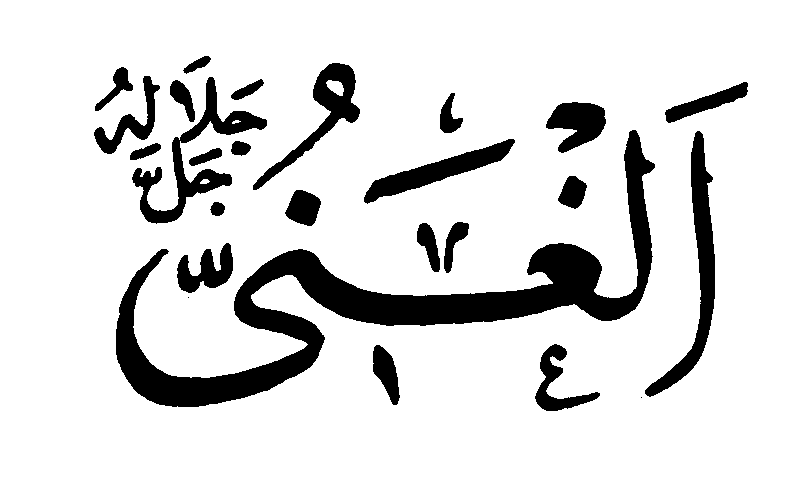 اَلْغَنِىُّ
جَلَّ جَلَالَهُ